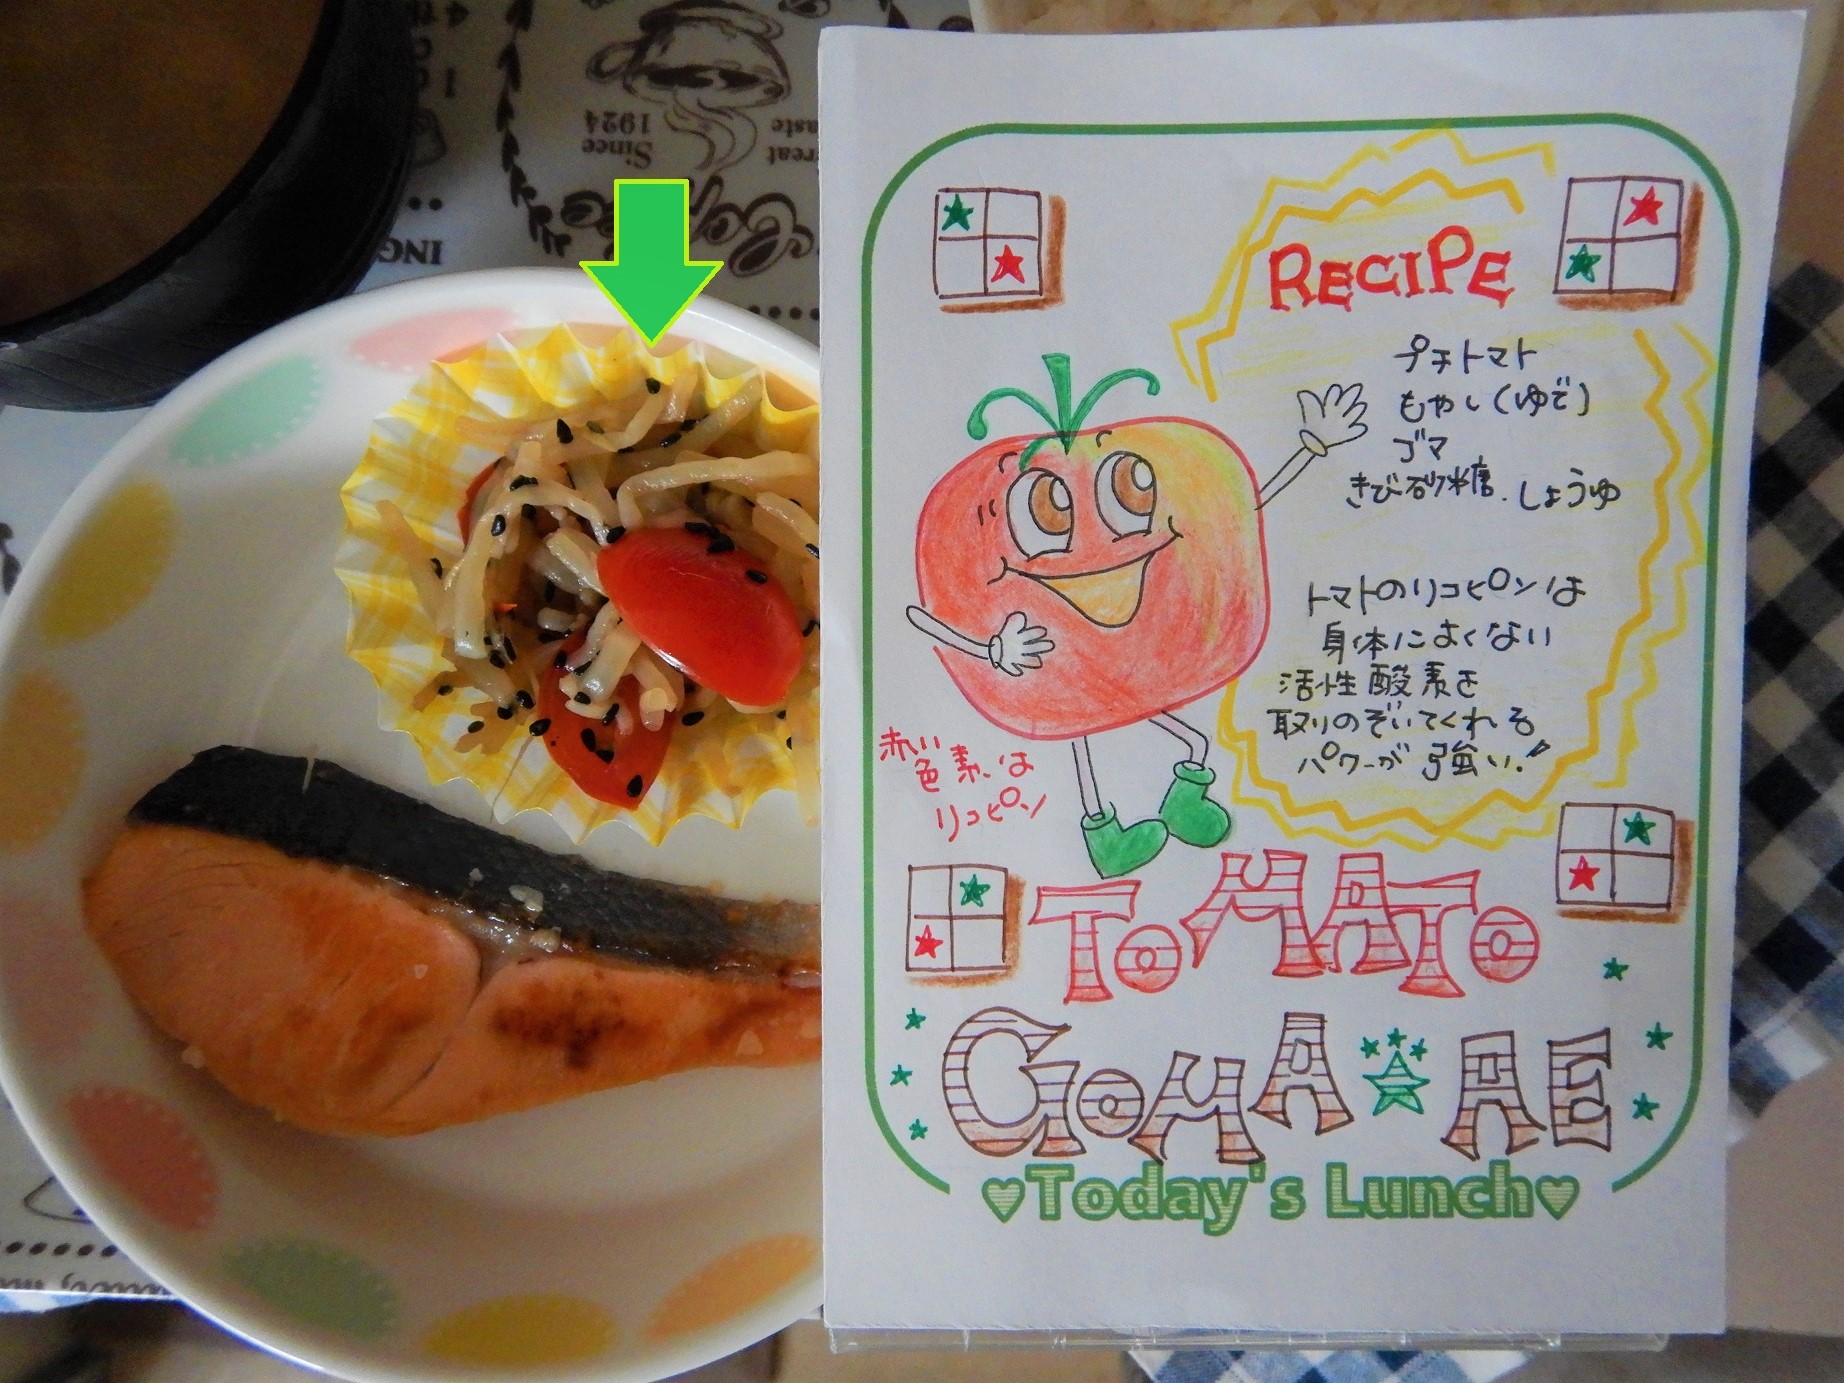 Since
1924
ING
RECIPE
プチトマト
もやし(ゆで)
ゴマ
きび砂糖.しょうゆ
トマトのリコピンは
身体によくない
活性酸素を
取りのぞいてくれる
パワーが強い!
赤い
色素は
リコピン
TOMATO
GOMA☆AE
♥Today's Lunch♥